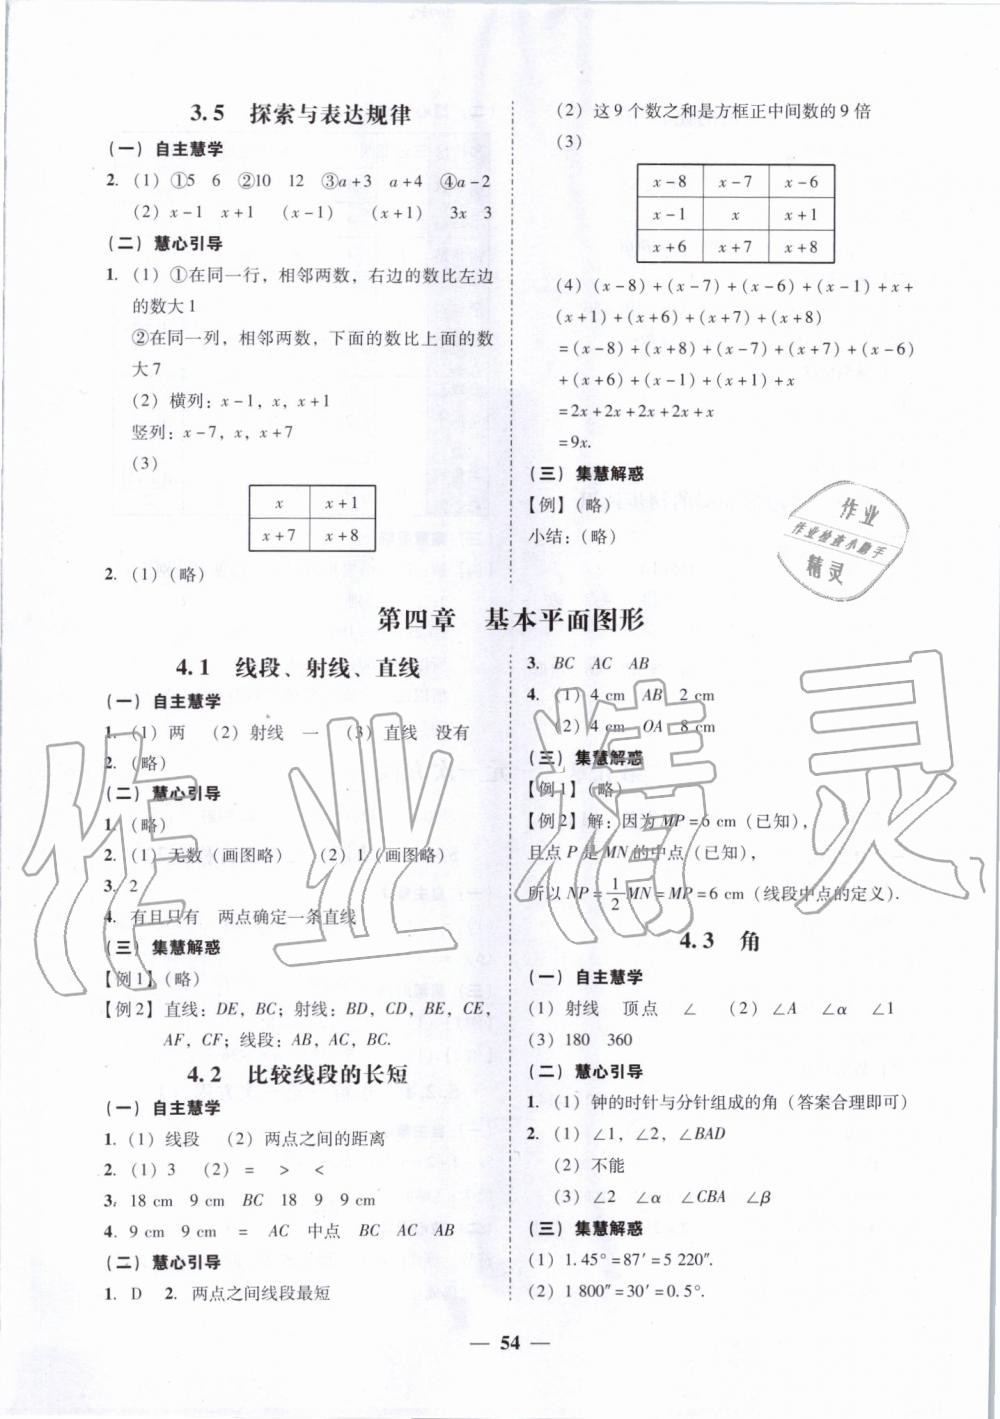 3.5 探索与表达规律
(一) 自主慧学
2. (1) ①5 6 ②10 12 ③a+3 a+4 ④a-2
(2) x-1 x+1 (x-1) (x+1) 3x 3
(二) 慧心引导
1. (1) ①在同一行，相邻两数，右边的数比左边
的数大1
②在同一列，相邻两数，下面的数比上面的数
大7
(2) 横列：x-1，x，x+1
竖列：x-7，x，x+7
(3)
x x+1
x+7 x+8
2. (1)（略）
(2) 这9个数之和是方框正中间数的9倍
(3)
x-8 x-7 x-6
x-1 x x+1
x+6 x+7 x+8
(4) (x-8)+(x-7)+(x-6)+(x-1)+x+
(x+1)+(x+6)+(x+7)+(x+8)
=(x-8)+(x+8)+(x-7)+(x+7)+(x-6)
+(x+6)+(x-1)+(x+1)+x
=2x+2x+2x+2x+x
=9x.
(三) 集慧解惑
【例】（略）
小结：（略）
作业
作业检查小助手
精灵
第四章 基本平面图形
4.1 线段、射线、直线
(一) 自主慧学
1. (1) 两 (2) 射线 一 (3) 直线 没有
2.（略）
(二) 慧心引导
1.（略）
2. (1) 无数（画图略） (2) 1（画图略）
3. 2
4. 有且只有 两点确定一条直线
(三) 集慧解惑
【例1】（略）
【例2】直线：DE，BC；射线：BD，CD，BE，CE，
AF，CF；线段：AB，AC，BC.
4.2 比较线段的长短
(一) 自主慧学
1. (1) 线段 (2) 两点之间的距离
2. (1) 3 (2) = > <
3. 18 cm 9 cm BC 18 9 9 cm
4. 9 cm 9 cm = AC 中点 BC AC AB
(二) 慧心引导
1. D 2. 两点之间线段最短
3. BC AC AB
4. (1) 4 cm AB 2 cm
(2) 4 cm OA 8 cm
(三) 集慧解惑
【例1】（略）
【例2】解：因为MP=6 cm（已知），
且点P是MN的中点（已知），
所以NP=1/2MN=MP=6 cm（线段中点的定义）.
4.3 角
(一) 自主慧学
(1) 射线 顶点 ∠ (2) ∠A ∠α ∠1
(3) 180 360
(二) 慧心引导
1. (1) 钟的时针与分针组成的角（答案合理即可）
2. (1) ∠1，∠2，∠BAD
(2) 不能
(3) ∠2 ∠α ∠CBA ∠β
(三) 集慧解惑
(1) 1.45°=87′=5 220″.
(2) 1 800″=30′=0.5°.
作业精灵
— 54 —